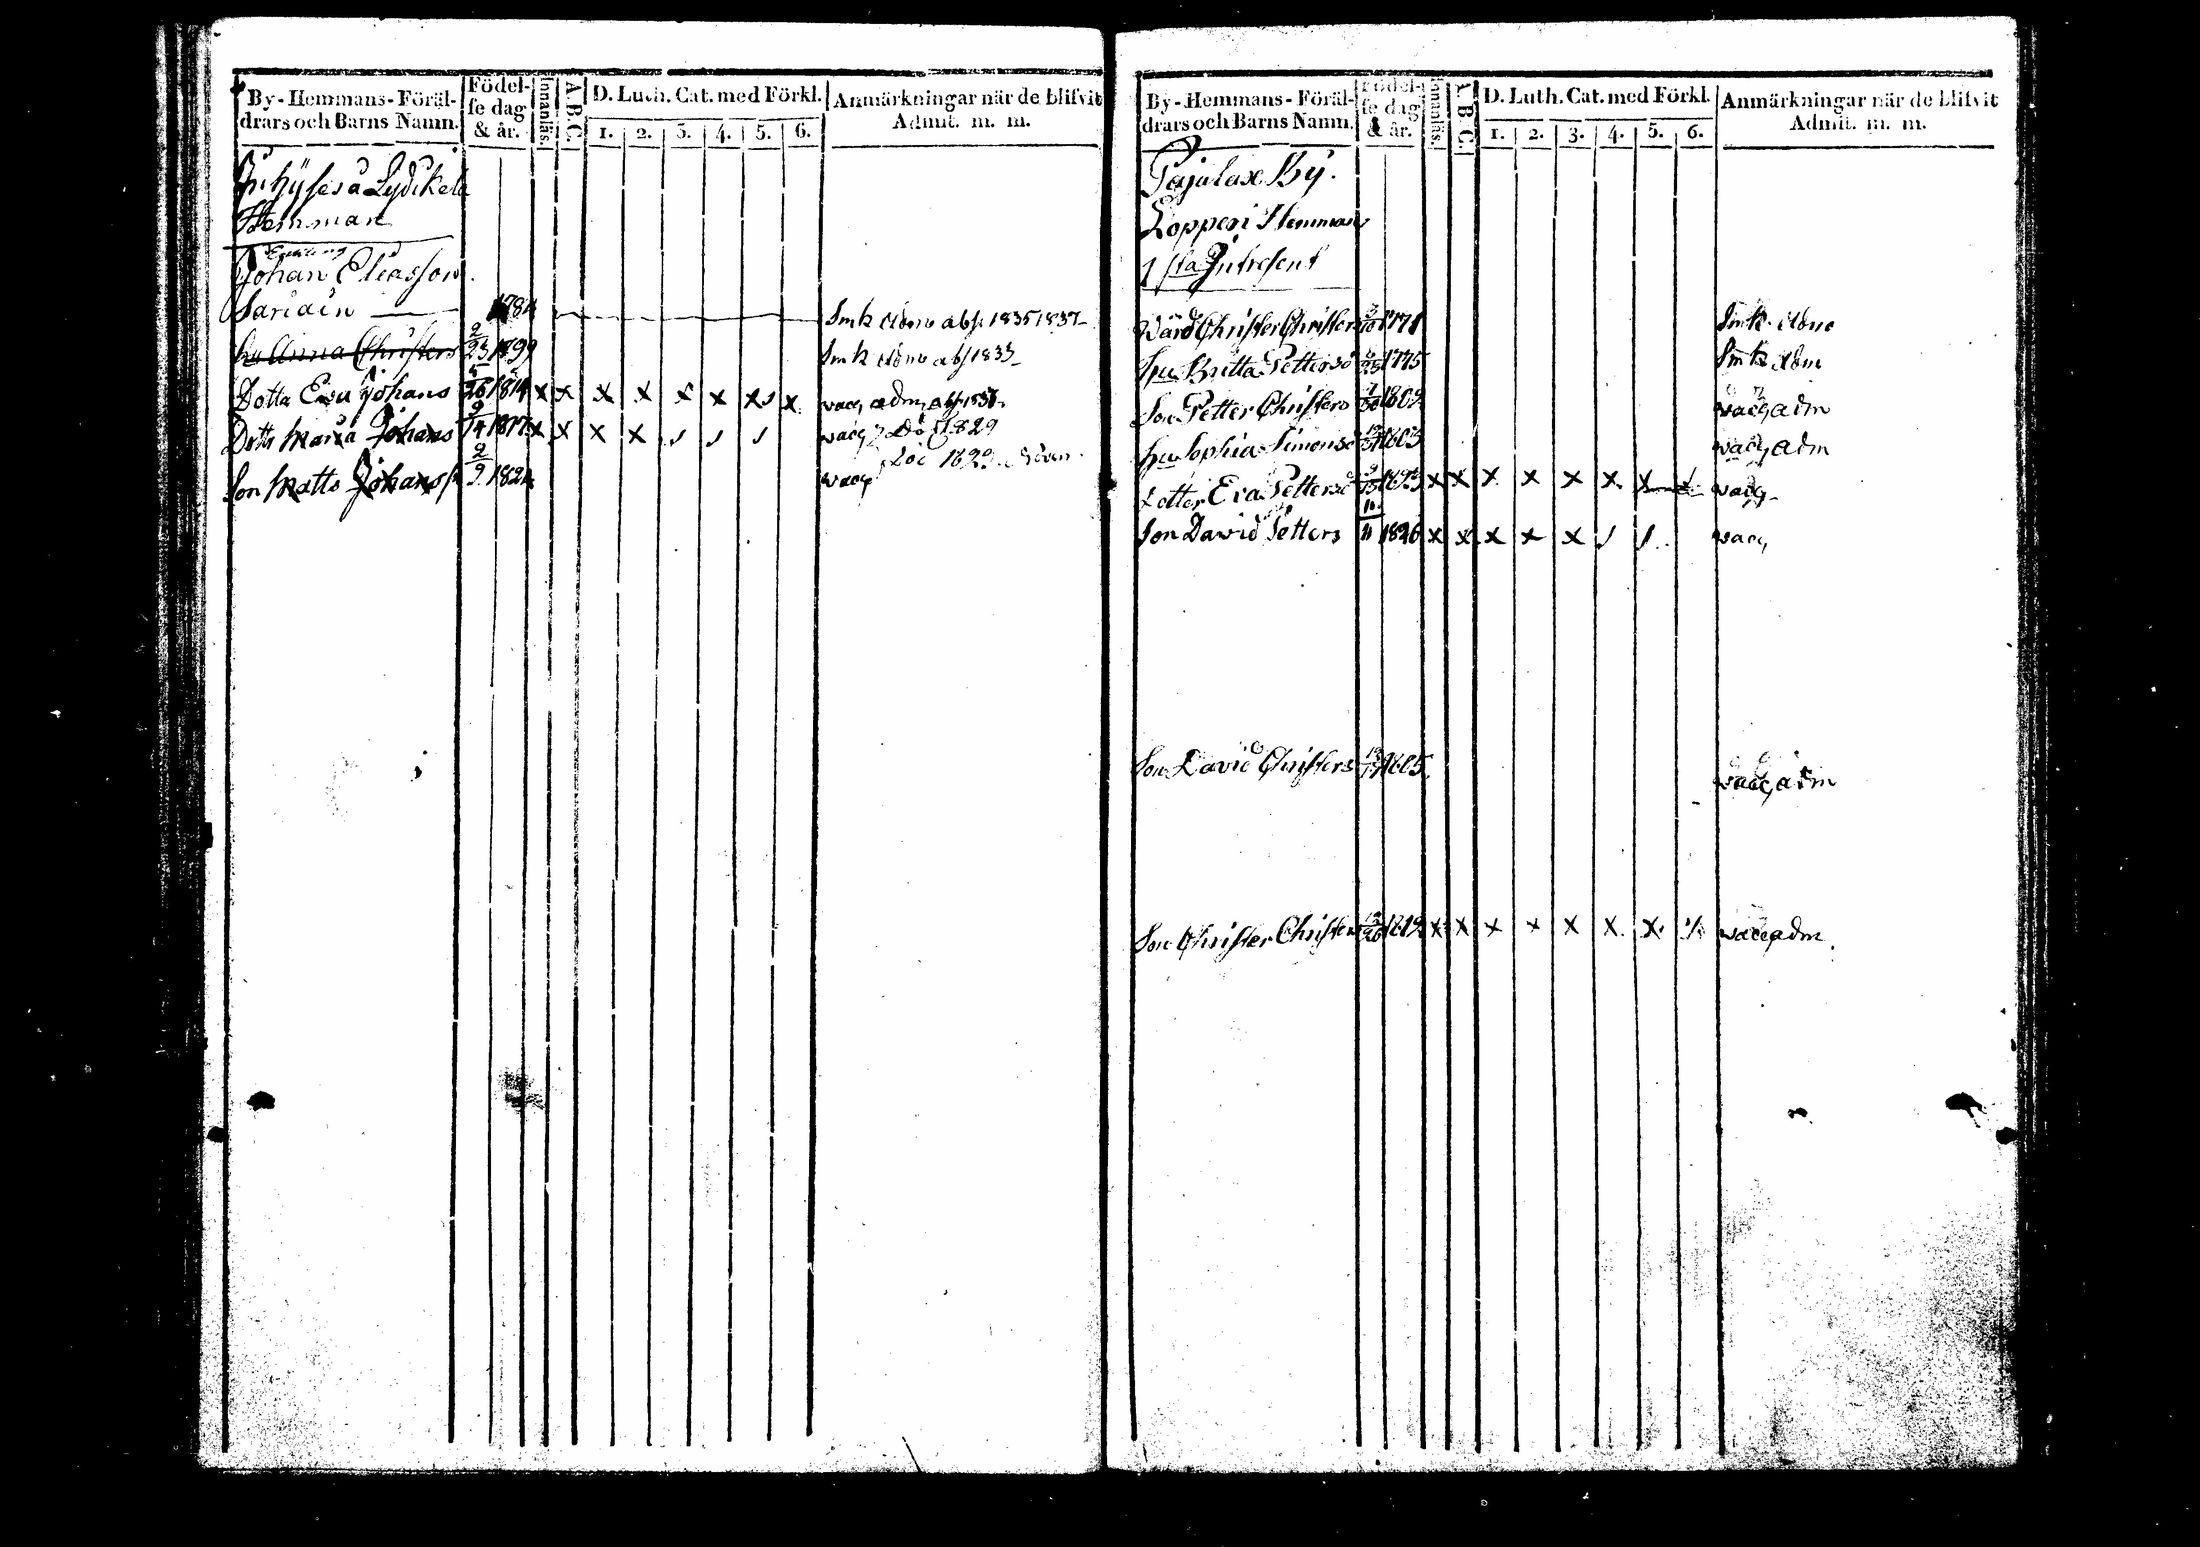 By-Hemmans-Föräl-
drars och Barns Namn.
Födel-
se dag
& år.
Innanläs.
A.B.C.
D. Luth. Cat. med Förkl.
1. 2. 3. 4. 5. 6.
Anmärkningar när de blifvit
Admit. m. m.
Inhyses å Lydikela
Hemman
Johan Eleasson
Sariain 1784 Smk adm absf 1835 1837
hu Anna Christers 2/23 1799 Smk adm absf 1835
Dotta Eva Johans 5/26 1814 x x x x x x x x wacc adm absf 1836
Dottr Maria Johans 9/14 1817 x x x x wacc Död 1829
Son Matts Johanss 2/9 1824 wacc Död 1829
By-Hemmans-Föräl-
drars och Barns Namn.
Födel-
se dag
& år.
Innanläs.
A.B.C.
D. Luth. Cat. med Förkl.
1. 2. 3. 4. 5. 6.
Anmärkningar när de blifvit
Admit. m. m.
Pajulax By.
Lopperi Hemman
1sta Intresent
Wärd Christer Christers 1771 Smk adm
Hu Britta Petters 1775 Smk adm
Son Petter Christers 1802 wacc adm
hu Sophia Simons 1803 wacc adm
Dotter Eva Petters x x x x x x x wacc
Son Dawid Petters 11/11 1826 x x x x x wacc
Son David Christers 1805 wacc adm
Son Christer Christers 1812 x x x x x x x wacc adm